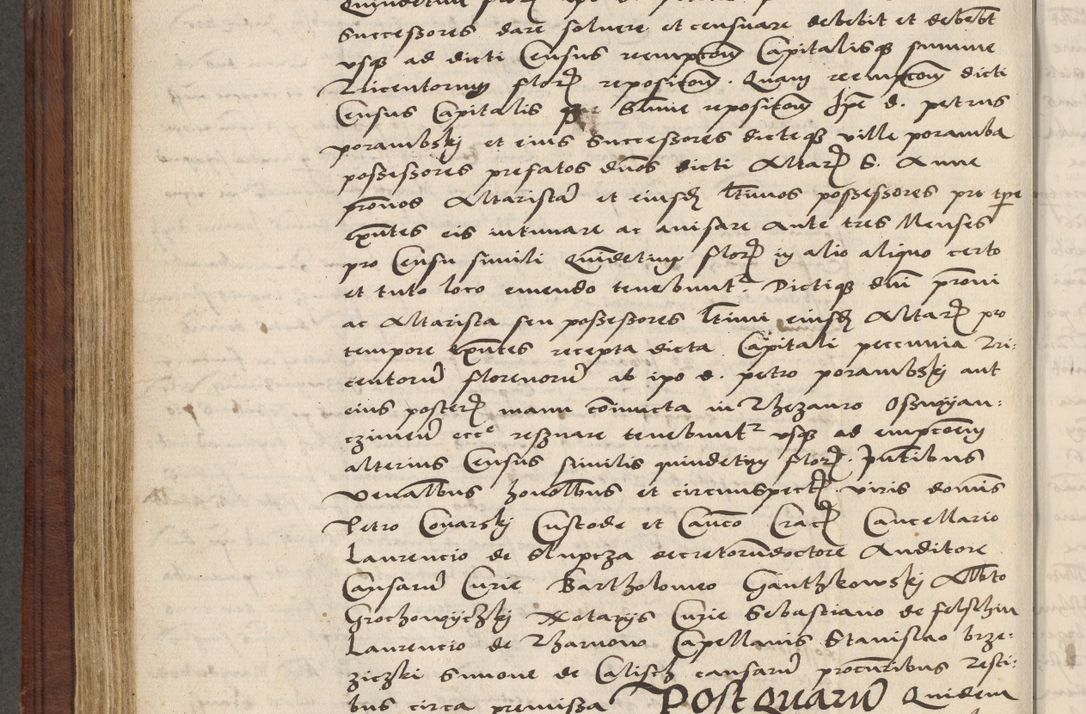 successores dare solvere et censuare debebit et debebt
usq ad dicti Census reempcom Capitalisq summe
Tricentorum flor repositom. Quam reempcom dicti
Census Capitalis summe repositom Ipe d. petrus
porambskj et eius successores dicteq ville poramba
possessores prefatos dnos dicti Altar S. Anne
pronos Altaristam et eiusd ltimos possessores pro tpe
exntes eis intimare ac avisare Ante tres Menses
pro Censu simili Quindecim flor in alio aliquo certo
et tuto loco emendo tenebunt. Dictiq dni proni
ac Altarista seu possessores ltimi eiusd Altar pro
tempore exntes recepta dicta Capitali peccunia Tri:
centorum florenorum ab ipo d. petro porambskj aut
eius poster manu coniucta in Thezauro Oswyan:
czimen ecce resignare tenebuntr usq ad empcoem
alterius Census similis quindecim flor. Pntibus
venalbus honolbus et circumspect viris domis
Petro Conarskj Custode et Canco Crac Cancellario
Laurencio de Slupcza decretorum doctore Auditore
Causarum Curie Bartholomeo Ganthkowskj Albto
Grochowyczkj Notarijs Curie Sebastiano de felschin
Laurencio de Tharnow Capellanis Stanislao brze:
ziczkj Simone de Calisch causarum procuribus Testi:
bus circa premissa Post quarum Quidem